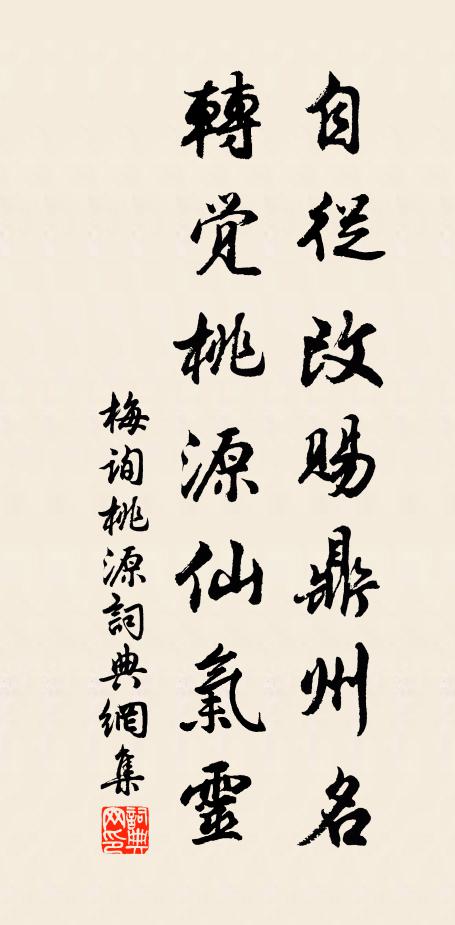 自從改賜鼎州名
轉觉桃源仙氣靈
梅询桃源詞典網集
詞典网印